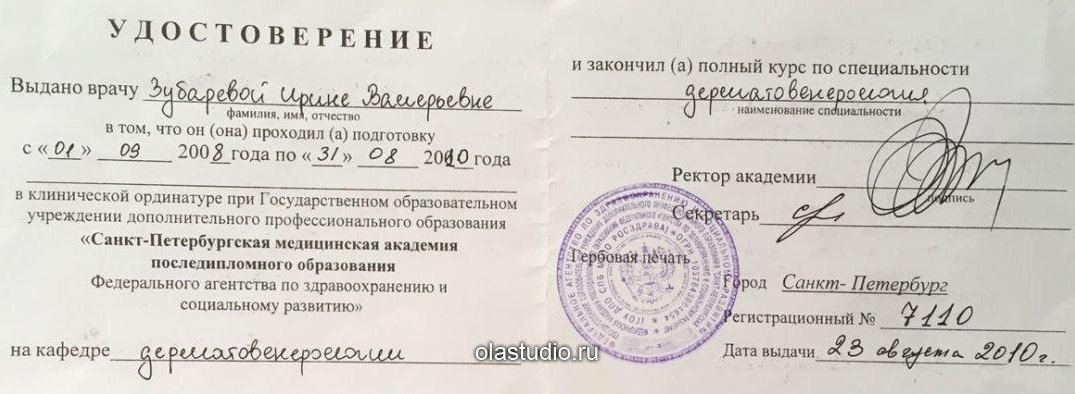 УДОСТОВЕРЕНИЕ
Выдано врачу Зубаревой Ирине Валерьевне
фамилия, имя, отчество
в том, что он (она) проходил (а) подготовку
с «01» 09 2008 года по «31» 08 2010 года
в клинической ординатуре при Государственном образовательном
учреждении дополнительного профессионального образования
«Санкт-Петербургская медицинская академия
последипломного образования
Федерального агентства по здравоохранению и
социальному развитию»
на кафедре дерматовенерологии
и закончил (а) полный курс по специальности
дерматовенерология
наименование специальности
Ректор академии
подпись
Секретарь
Гербовая печать
Город Санкт- Петербург
Регистрационный № 7110
Дата выдачи 23 августа 2010г.
olastudio.ru